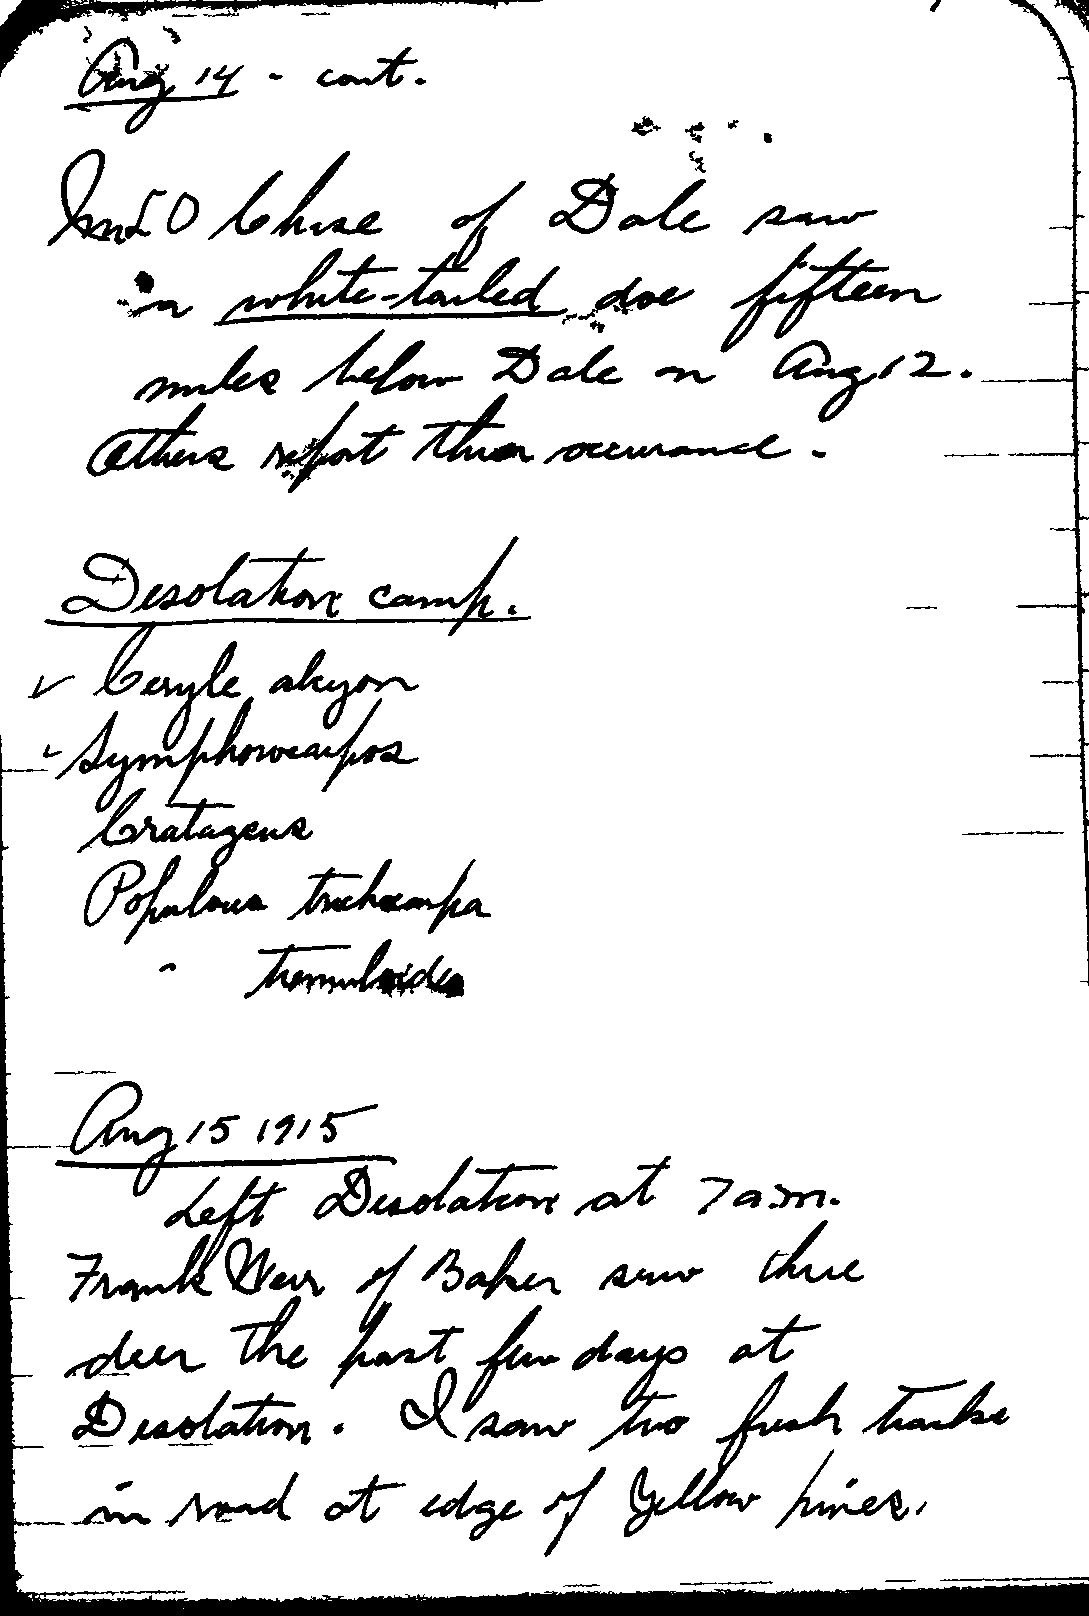 Aug 14 - cont.
of Dale saw
a white-tailed doe fifteen
miles below Dale on Aug 12.
Others report their occurance.
Desolation camp.
✓ Ceryle alcyon
✓ Symphorocarpos
Crataegus
Populous trichocarpa
" tremuloides
Aug 15 1915
Left Desolation at 7 a.m.
Frank Weir of Baker saw three
deer the past few days at
Desolation. I saw two fresh tracks
in road at edge of Yellow pines.